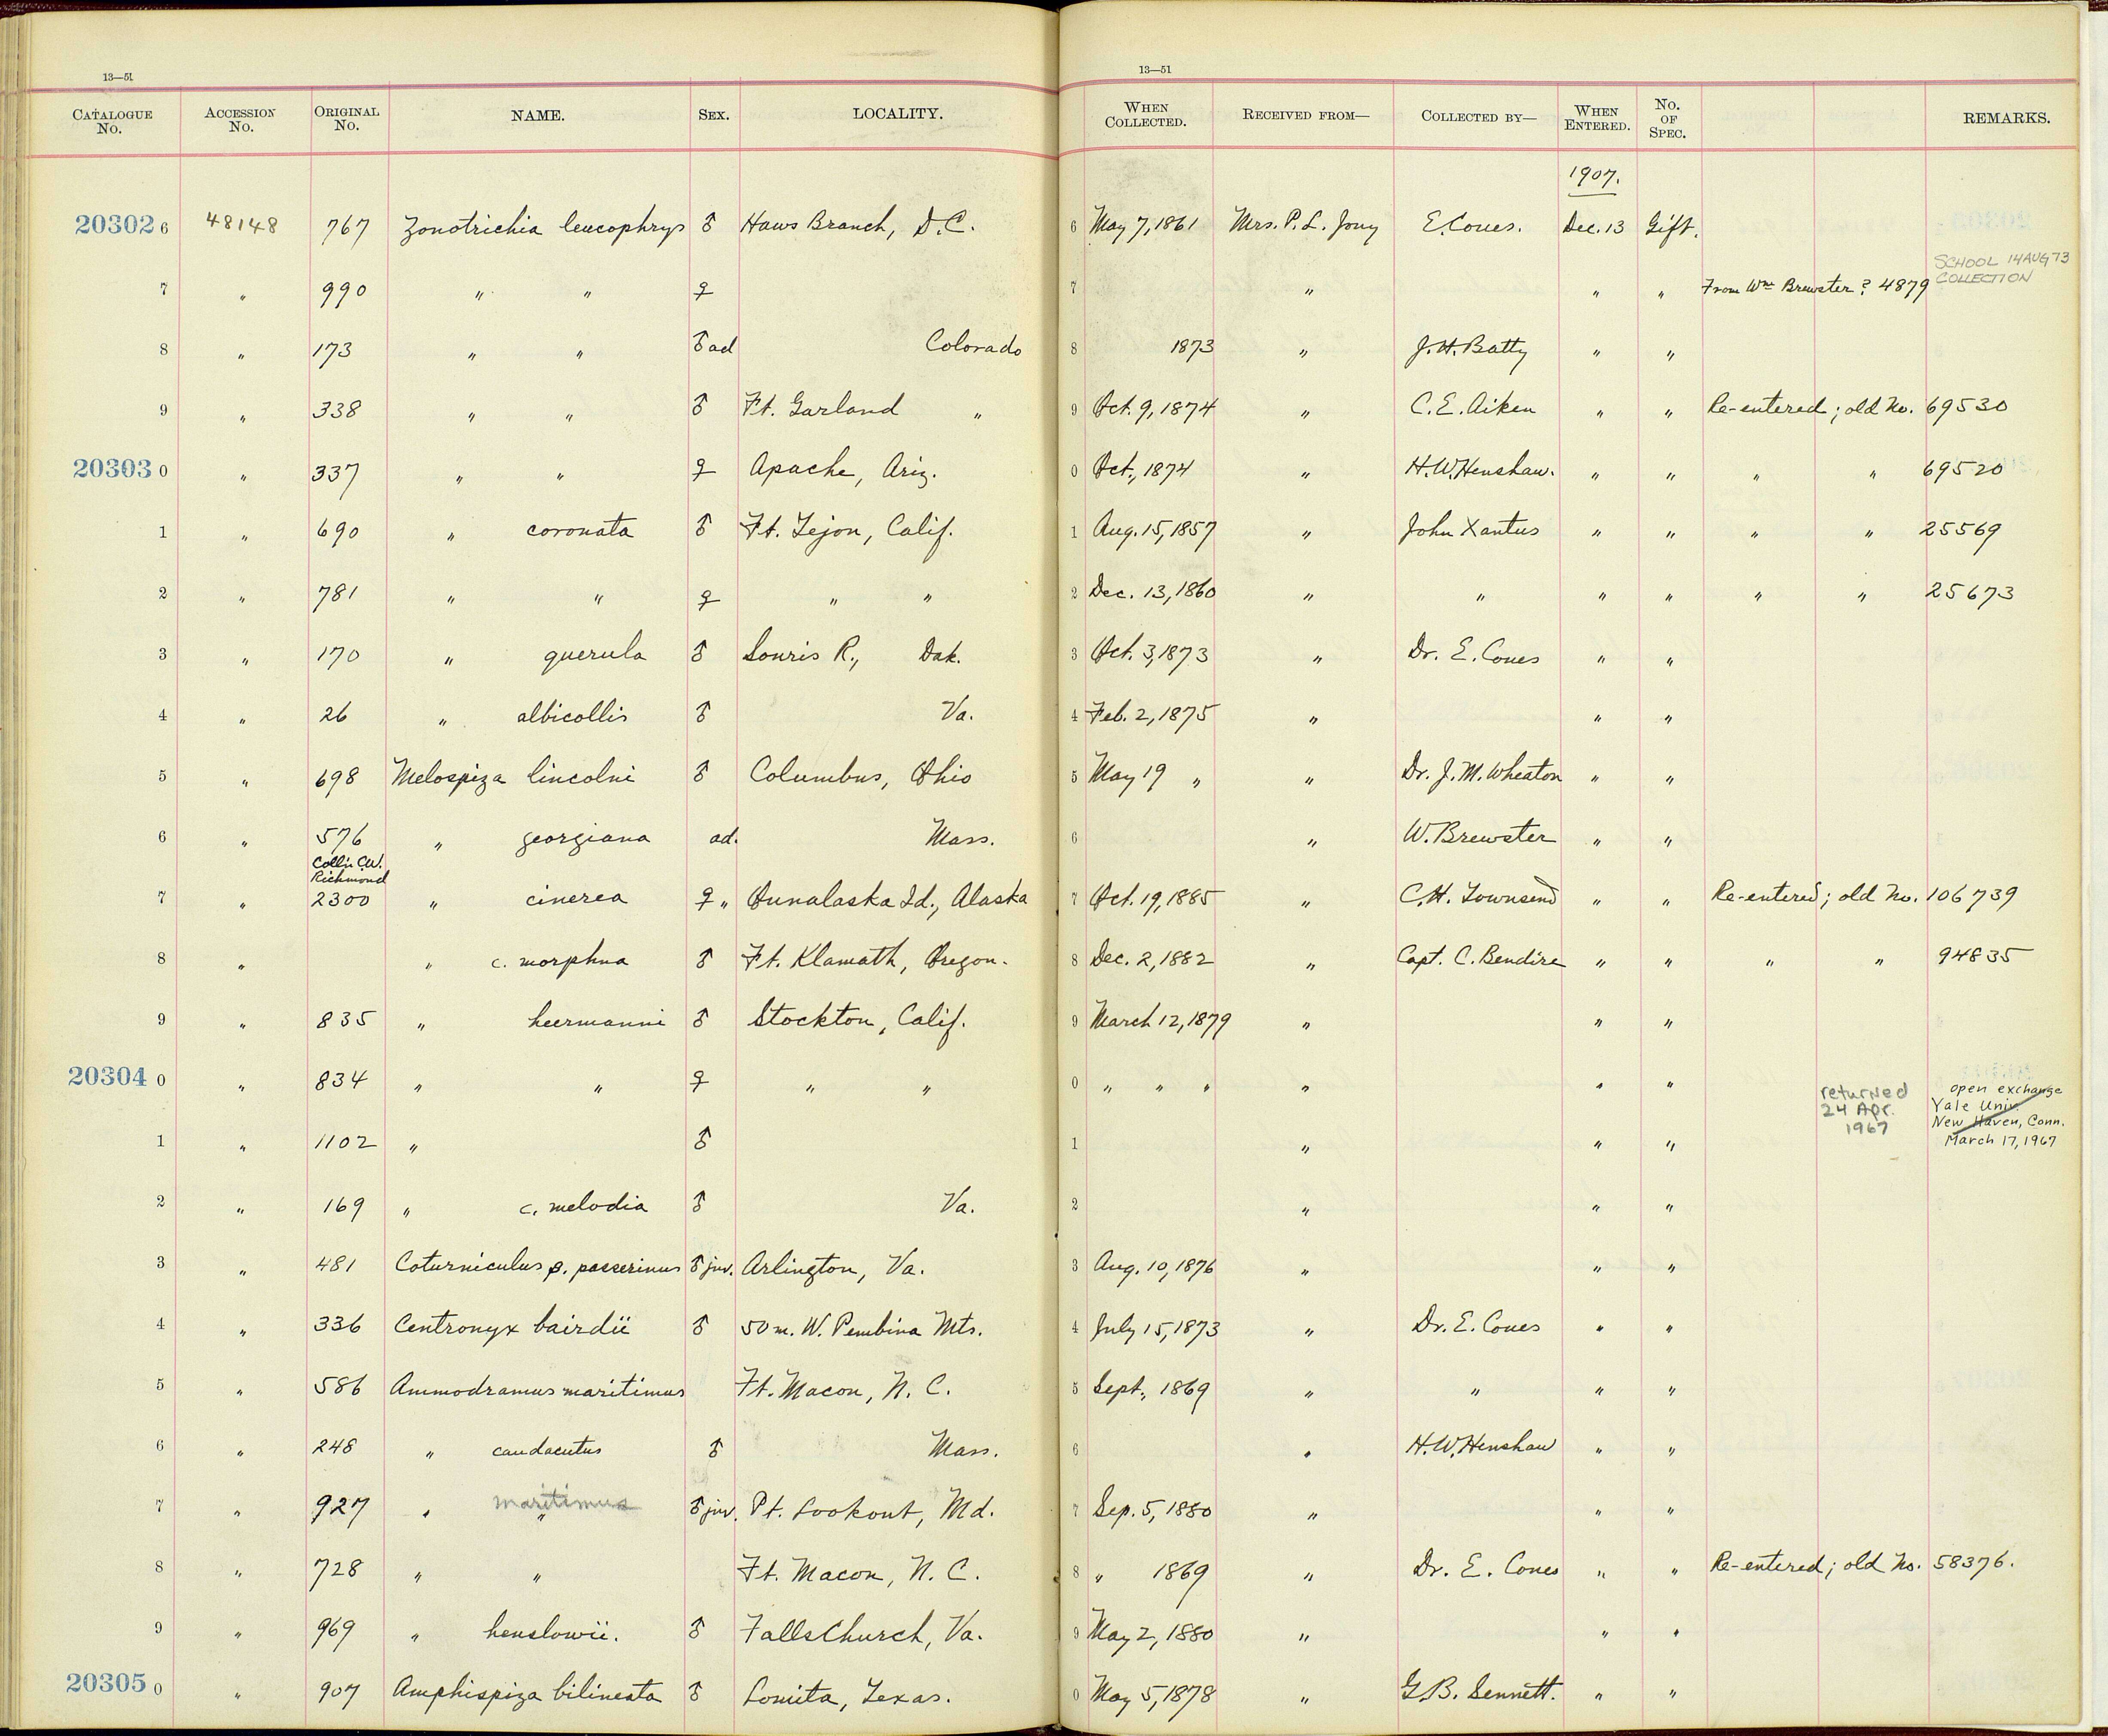 13—51
13—51
CATALOGUE No. ACCESSION No. ORIGINAL No. NAME. SEX. LOCALITY. WHEN COLLECTED. RECEIVED FROM— COLLECTED BY— WHEN ENTERED. No. OF SPEC. REMARKS.
1907.
20302 6 48148 767 Zonotrichia leucophrys ♂ Haws Branch, D.C. 6 May 7, 1861 Mrs. P. L. Jouy E. Coues. Dec. 13 Gift.
7 " 990 " " ♀ 7 " " " From Wm Brewster? 4879 SCHOOL 14 AUG 73 COLLECTION
8 " 173 " " ♂ ad Colorado 8 1873 " J. H. Batty " "
9 " 338 " " ♂ Ft. Garland " 9 Oct. 9, 1874 " C. E. Aiken " " Re-entered; old No. 69530
20303 0 " 337 " " ♀ Apache, Ariz. 0 Oct., 1874 " H. W. Henshaw. " " " " 69520
1 " 690 " coronata ♂ Ft. Tejon, Calif. 1 Aug. 15, 1857 " John Xantus " " " " 25569
2 " 781 " " ♀ " " 2 Dec. 13, 1860 " " " " " " 25673
3 " 170 " querula ♂ Souris R., Dak. 3 Oct. 3, 1873 " Dr. E. Coues " "
4 " 26 " albicollis ♂ Va. 4 Feb. 2, 1875 " " "
5 " 698 Melospiza lincolni ♂ Columbus, Ohio 5 May 19 " " Dr. J. M. Wheaton " "
6 " 576 " georgiana ad. Mass. 6 " W. Brewster " "
Coll'n C.W.
Richmond
7 " 2300 " cinerea ♀ " Ounalaska Id., Alaska 7 Oct. 19, 1885 " C. H. Townsend " " Re-entered; old No. 106739
8 " " c. morphna ♂ Ft. Klamath, Oregon. 8 Dec. 2, 1882 " Capt. C. Bendire " " " " 94835
9 " 835 " heermanni ♂ Stockton, Calif. 9 March 12, 1879 " " "
20304 0 " 834 " " ♀ " " 0 " " " " " "
returned 24 Apr. 1967
open exchange
Yale Univ.
New Haven, Conn.
March 17, 1967
1 " 1102 " ♂ 1 " " "
2 " 169 " c. melodia ♂ Va. 2 " " "
3 " 481 Coturniculus p. passerinus ♂ juv. Arlington, Va. 3 Aug. 10, 1876 " " "
4 " 336 Centronyx bairdii ♂ 50 m. W. Pembina Mts. 4 July 15, 1873 " Dr. E. Coues " "
5 " 586 Ammodramus maritimus Ft. Macon, N. C. 5 Sept., 1869 " " " "
6 " 248 " caudacutus ♂ Mass. 6 " H. W. Henshaw " "
7 " 927 " maritimus " ♂ juv. Pt. Lookout, Md. 7 Sep. 5, 1880 " " "
8 " 728 " " Ft. Macon, N. C. 8 " 1869 " Dr. E. Coues " " Re-entered; old No. 58376.
9 " 969 " henslowii. ♂ Falls Church, Va. 9 May 2, 1880 " " "
20305 0 " 907 Amphispiza bilineata ♂ Lomita, Texas. 0 May 5, 1878 " G. B. Sennett. " "